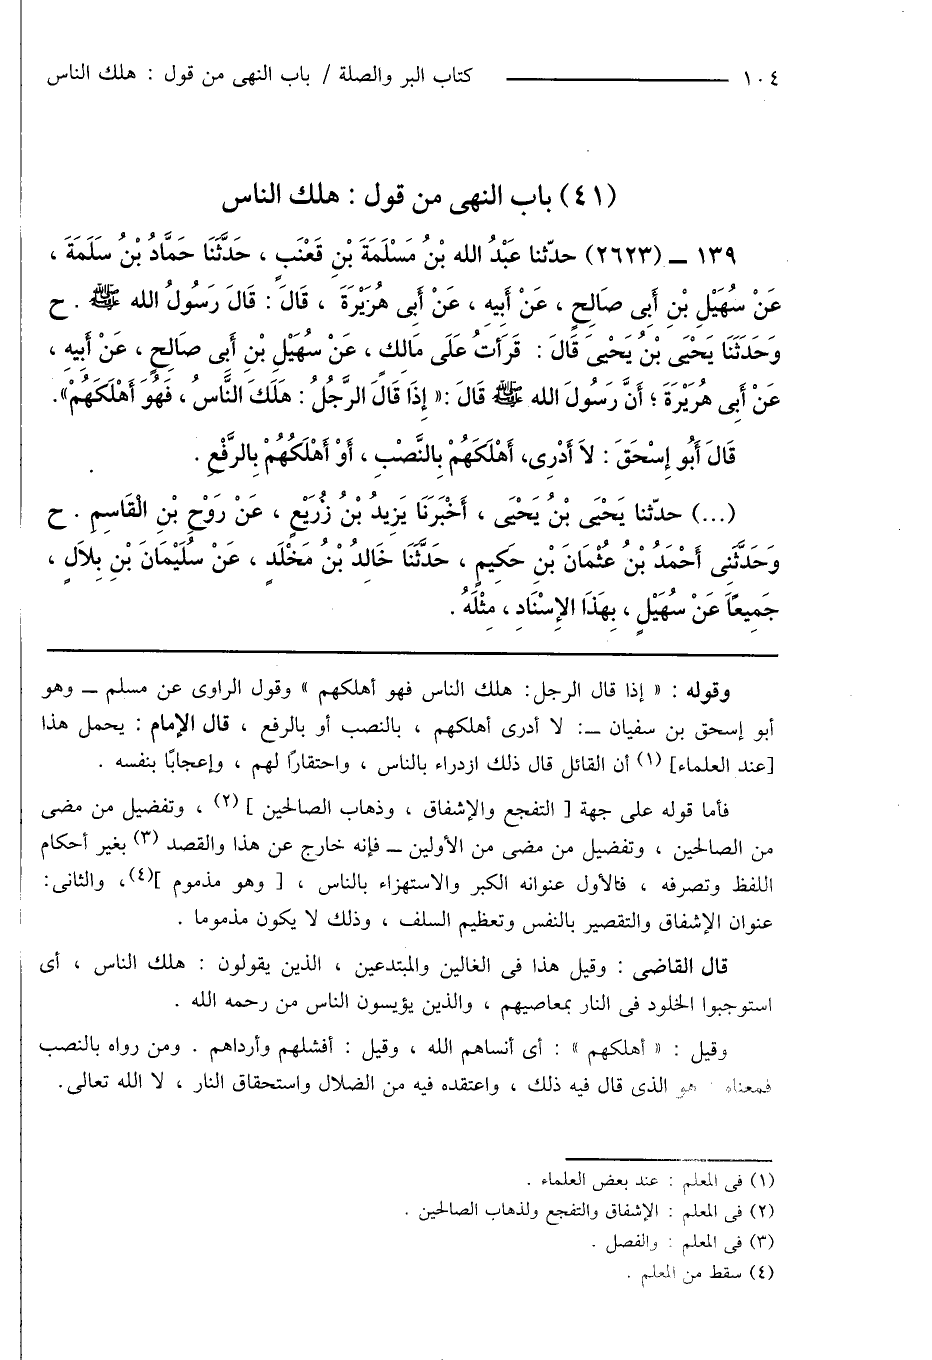 ١٠٤ ــــــــــ كتاب البر والصلة / باب النهى من قول : هلك الناس
(٤١) باب النهى من قول : هلك الناس
١٣٩ ـ (٢٦٢٣) حدّثنا عَبْدُ الله بْنُ مَسْلَمَةَ بْنِ قَعْنَبٍ ، حَدَّثَنَا حَمَّادُ بْنُ سَلَمَةَ ،
عَنْ سُهَيْلِ بْنِ أَبِى صَالِحٍ ، عَنْ أَبِيهِ ، عَنْ أَبِى هُرَيْرَةَ ، قَالَ : قَالَ رَسُولُ الله ﷺ . ح
وَحَدَّثَنَا يَحْيَى بْنُ يَحْيَىَ قَالَ : قَرَأتُ عَلَى مَالِكٍ ، عَنْ سُهَيْلِ بْنِ أَبِى صَالِحٍ ، عَنْ أَبِيهِ ،
عَنْ أَبِى هُرَيْرَةَ ؛ أَنَّ رَسُولَ الله ﷺ قَالَ :« إِذَا قَالَ الرَّجُلُ : هَلَكَ النَّاسُ ، فَهُوَ أَهْلَكَهُمْ».
قَالَ أَبُو إِسْحَقَ : لاَ أَدْرِى، أَهْلَكَهُمْ بِالنَّصْبِ ، أَوْ أَهْلَكُهُمْ بِالرَّفْعِ .
(...) حدّثنا يَحْيَى بْنُ يَحْيَى ، أَخْبَرَنَا يَزِيدُ بْنُ زُرَيْعٍ ، عَنْ رَوْحِ بْنِ الْقَاسِمِ . ح
وَحَدَّثَنِى أَحْمَدُ بْنُ عُثْمَانَ بْنِ حَكِيمٍ ، حَدَّثَنَا خَالِدُ بْنُ مَخْلَدٍ ، عَنْ سُلَيْمَانَ بْنِ بِلاَلٍ ،
جَمِيعًا عَنْ سُهَيْلٍ ، بِهَذَا الإِسْنَادِ ، مِثْلَهُ .
وقوله : « إذا قال الرجل: هلك الناس فهو أهلكهم » وقول الراوى عن مسلم ـ وهو
أبو إسحق بن سفيان ـ: لا أدرى أهلكهم ، بالنصب أو بالرفع ، قال الإمام : يحمل هذا
[عند العلماء] (١) أن القائل قال ذلك ازدراء بالناس ، واحتقارًا لهم ، وإعجابًا بنفسه .
فأما قوله على جهة [ التفجع والإشفاق ، وذهاب الصالحين ] (٢) ، وتفضيل من مضى
من الصالحين ، وتفضيل من مضى من الأولين ـ فإنه خارج عن هذا والقصد (٣) بغير أحكام
اللفظ وتصرفه ، فالأول عنوانه الكبر والاستهزاء بالناس ، [ وهو مذموم ](٤)، والثانى:
عنوان الإشفاق والتقصير بالنفس وتعظيم السلف ، وذلك لا يكون مذموما .
قال القاضى : وقيل هذا فى الغالين والمبتدعين ، الذين يقولون : هلك الناس ، أى
استوجبوا الخلود فى النار بمعاصيهم ، والذين يؤيسون الناس من رحمه الله .
وقيل : « أهلكهم » : أى أنساهم الله ، وقيل : أفشلهم وأرداهم . ومن رواه بالنصب
فمعناه هو الذى قال فيه ذلك ، واعتقده فيه من الضلال واستحقاق النار ، لا الله تعالى.
(١) فى المعلم : عند بعض العلماء .
(٢) فى المعلم : الإشفاق والتفجع ولذهاب الصالحين .
(٣) فى المعلم : والفصل .
(٤) سقط من المعلم .